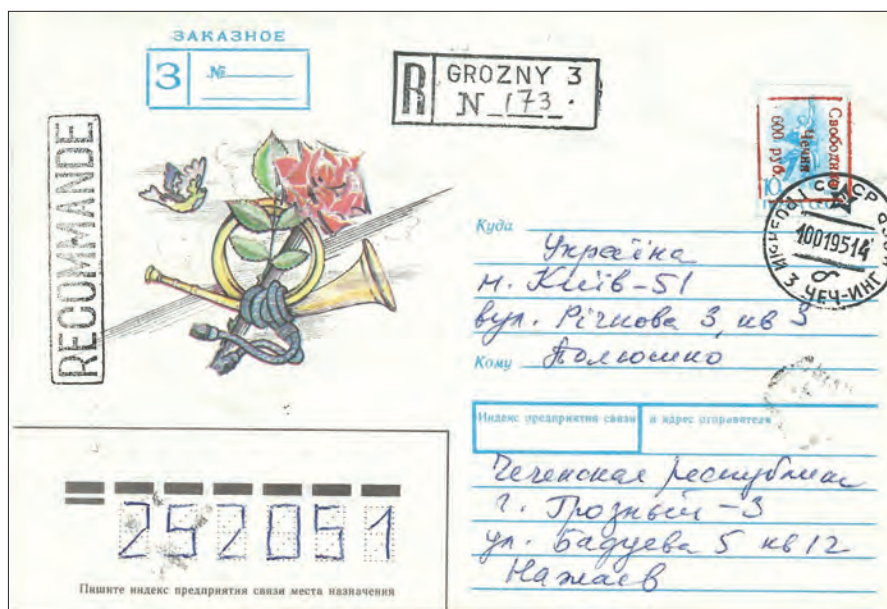 ЗАКАЗНОЕ
З №
R GROZNY 3
N 173
RECOMMANDE
Свободная
Чечня
600 руб.
10
СССР
10019514
3 ЧЕЧ-ИНГ
Куда Украïна
м. Киïв-51
вул. Рiчкова 3, кв 3
Кому Полюшко
Индекс предприятия связи и адрес отправителя
Чеченская республика
г. Грозный-3
ул. Бадуева 5 кв 12
Нажаев
252051
Пишите индекс предприятия связи места назначения